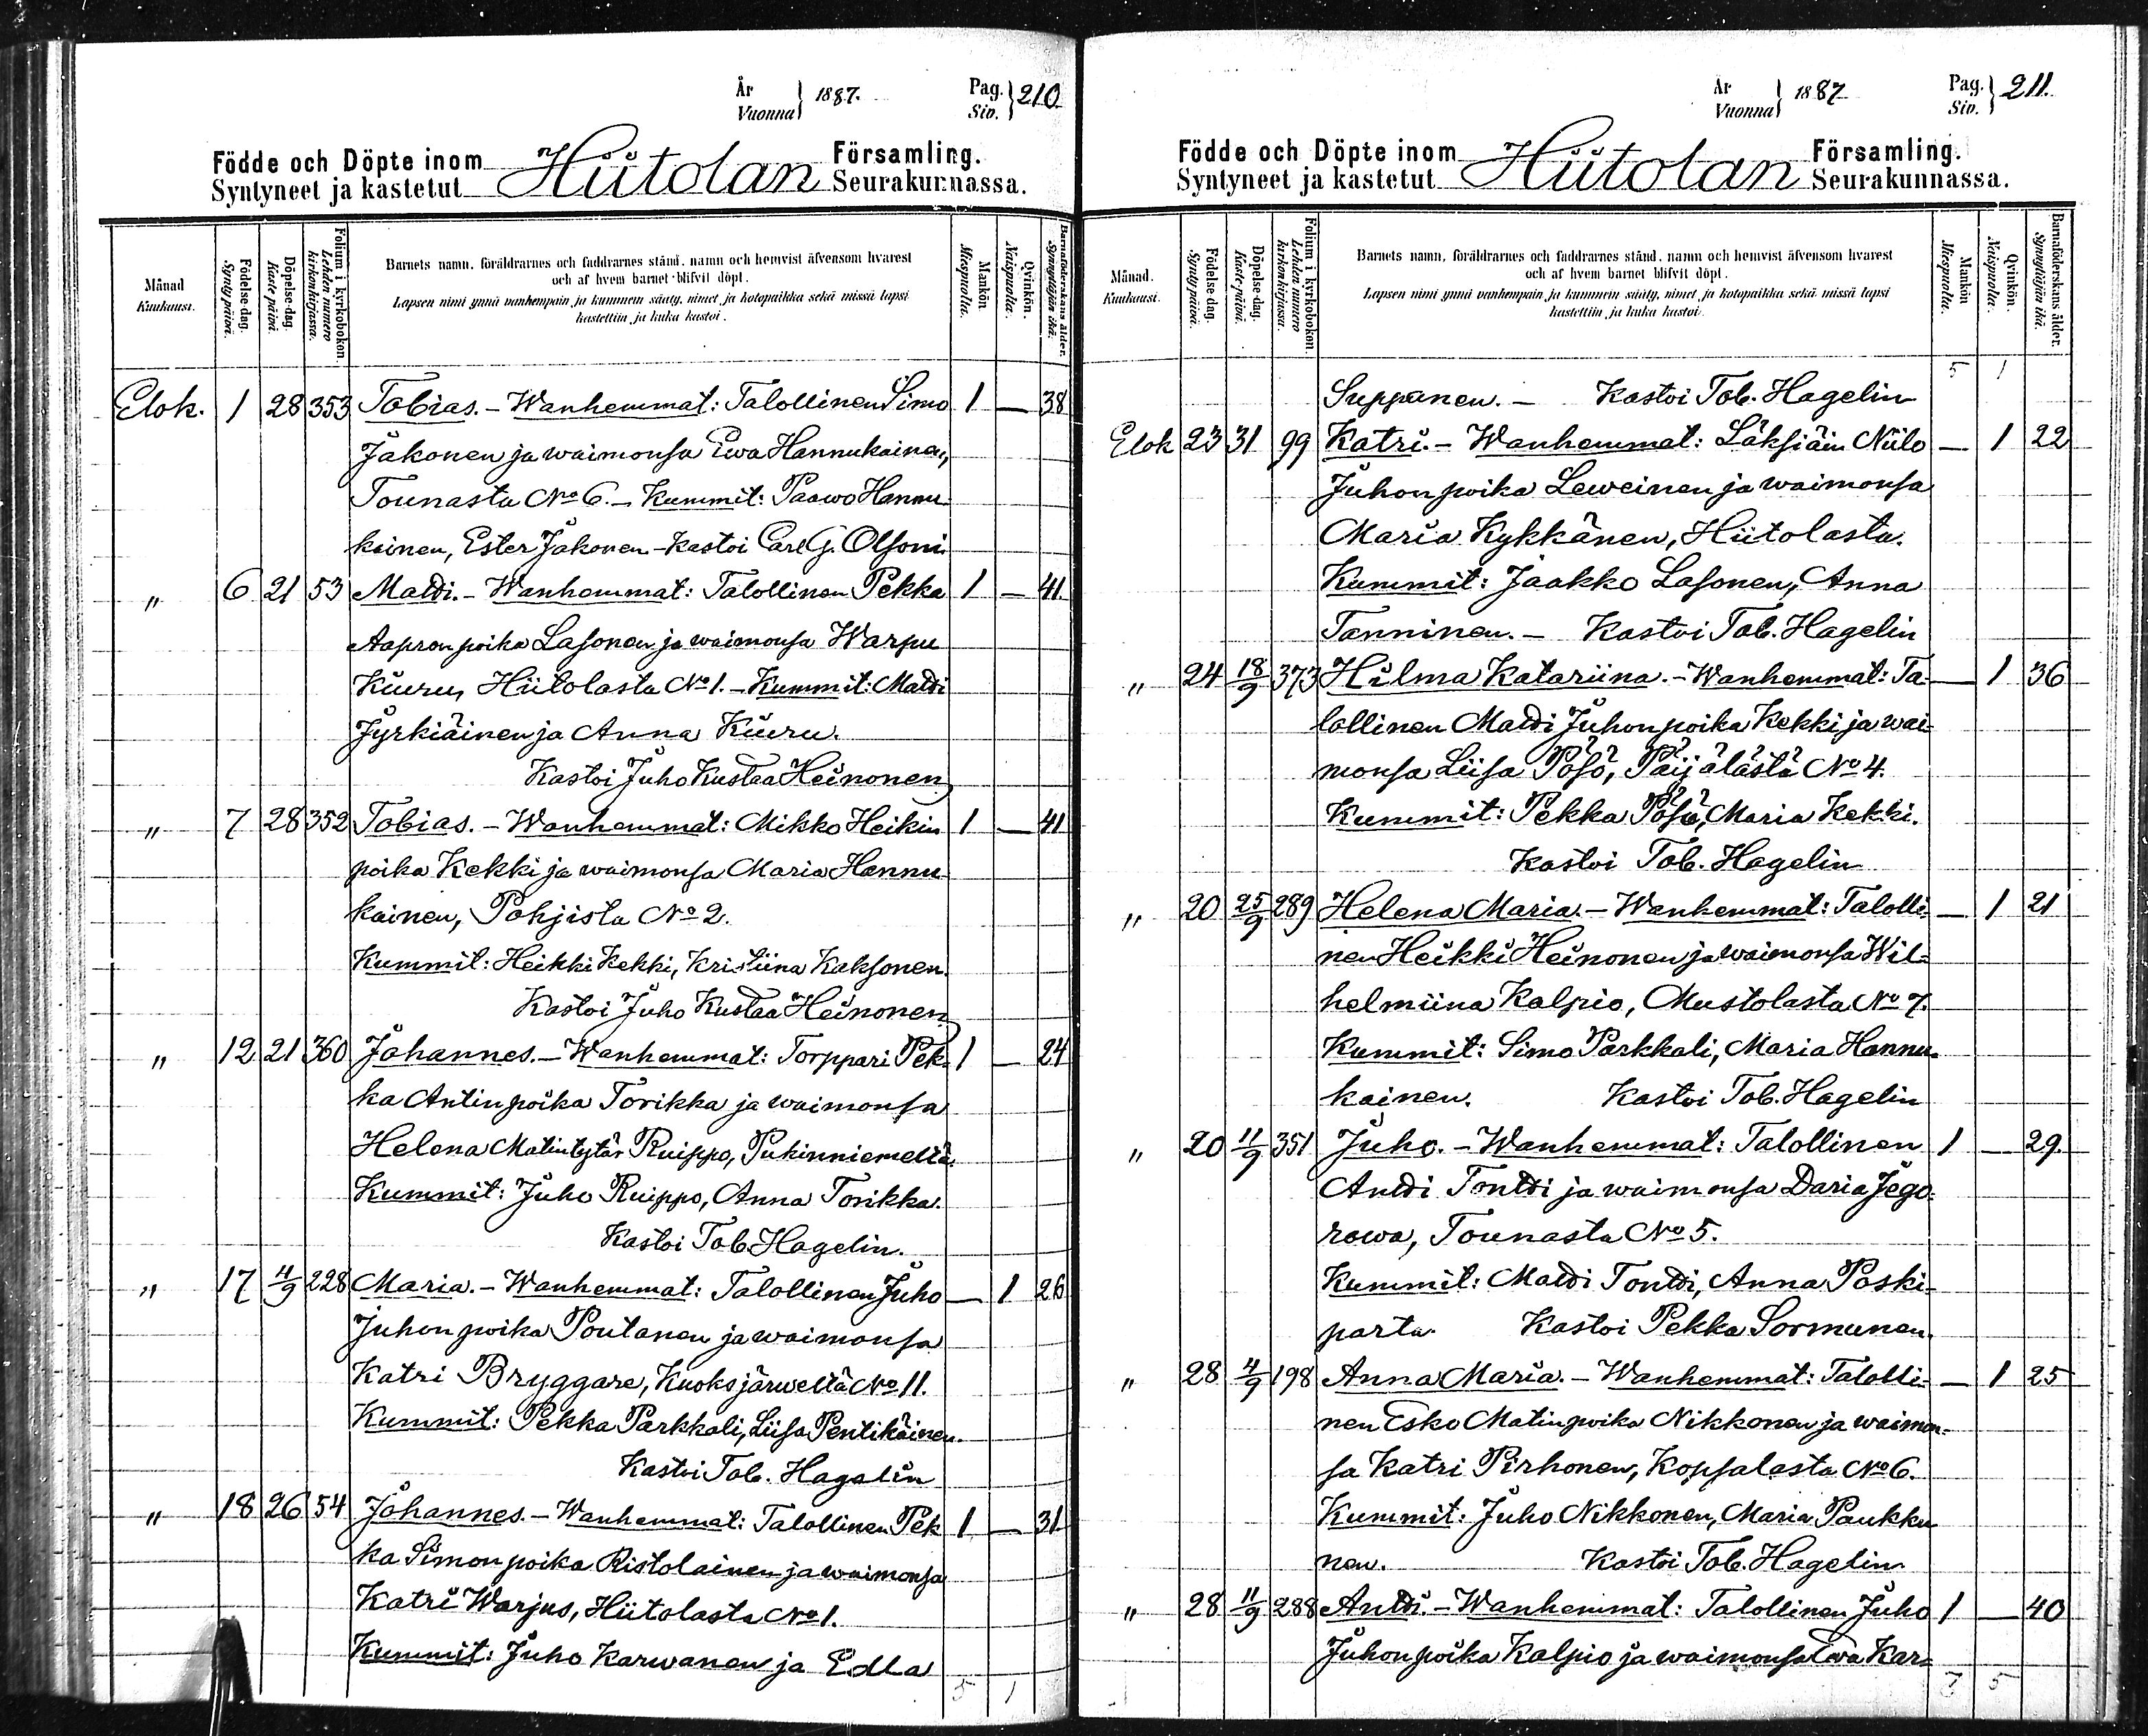 År
Vuonna } 1887.
Pag.
Siv. } 210
Födde och Döpte inom
Syntyneet ja kastetut Hiitolan Församling.
Seurakunnassa.
Månad
Kuukausi.
Födelse-dag.
Synty päivä.
Döpelse-dag.
Kaste päivä.
Folium i kyrkobokon.
Lehden numero
kirkonkirjassa.
Barnets namn, föräldrarnes och faddrarnes stånd, namn och hemvist äfvensom hvarest
och af hvem barnet blifvit döpt.
Lapsen nimi ynnä vanhempain ja kummein sääty, nimet ja kotopaikka sekä missä lapsi
kastettiin ja kuka kastoi.
Mankön
Miespuolta.
Qvinkön.
Naispuolta.
Barnaföderskans ålder.
Synnyttäjän ikä.
Elok. 1 28 353 Tobias. – Wanhemmat: Talollinen Simo 1 — 38
Jakonen ja waimonsa Ewa Hannukainen,
Tounasta No 6. – Kummit: Paawo Hannu-
kainen, Ester Jakonen – Kastoi Carl G. Olsoni
" 6 21 53 Matti. – Wanhemmat: Talollinen Pekka 1 — 41
Aapronpoika Lasonen ja waimonsa Warpu
Kiuru, Hiitolasta No 1. – Kummit: Matti
Jyrkiäinen ja Anna Kiuru.
Kastoi Juho Kustaa Heinonen
" 7 28 352 Tobias. – Wanhemmat: Mikko Heikin 1 — 41
poika Kekki ja waimonsa Maria Hannu-
kainen, Pohjista No 2.
Kummit: Heikki Kekki, Kristiina Kaksonen.
Kastoi Juho Kustaa Heinonen
" 12 21 360 Johannes. – Wanhemmat: Torppari Pek- 1 — 24
ka Antinpoika Torikka ja waimonsa
Helena Matintytär Ruippo, Pukinniemeltä.
Kummit: Juho Ruippo, Anna Torikka.
Kastoi Tob. Hagelin.
" 17 4/9 228 Maria. – Wanhemmat: Talollinen Juho — 1 26
Juhonpoika Poutanen ja waimonsa
Katri Bryggare, Kuoksjärweltä No 11.
Kummit: Pekka Parkkali, Liisa Pentikäinen.
Kastoi Tob. Hagelin
" 18 26 54 Johannes. – Wanhemmat: Talollinen Pek 1 — 31
ka Simonpoika Ristolainen ja waimonsa
Katri Warjus, Hiitolasta No 1.
Kummit: Juho Karwanen ja Edla
5 1
År
Vuonna } 1887
Pag.
Siv. } 211.
Födde och Döpte inom
Syntyneet ja kastetut Hiitolan Församling.
Seurakunnassa.
Månad.
Kuukausi.
Födelse dag.
Synty päivä.
Döpelse-dag.
Kaste-päivä.
Folium i kyrkobokon.
Lehden numero
kirkonkirjassa.
Barnets namn, föräldrarnes och faddrarnes stånd, namn och hemvist äfvensom hvarest
och af hvem barnet blifvit döpt.
Lapsen nimi ynnä vanhempain ja kummein sääty, nimet ja kotopaikka sekä missä lapsi
kastettiin ja kuka kastoi.
Mankön
Miespuolta.
Qvinkön.
Naispuolta.
Barnaföderskans ålder.
Synnyttäjän ikä.
5 1
Suppanen. – Kastoi Tob. Hagelin
Elok 23 31 99 Katri. – Wanhemmat: Läksiäin Niilo — 1 22
Juhonpoika Leweinen ja waimonsa
Maria Kykkänen, Hiitolasta.
Kummit: Jaakko Lasonen, Anna
Tanninen. – Kastoi Tob. Hagelin
" 24 18/9 373 Hilma Katariina. – Wanhemmat: Ta- — 1 36
lollinen Matti Juhonpoika Kekki ja wai-
monsa Liisa Pösö, Päijälästä No 4.
Kummit: Pekka Pösö, Maria Kekki.
Kastoi Tob. Hagelin
" 20 25/9 289 Helena Maria. – Wanhemmat: Talolli- — 1 21
nen Heikki Heinonen ja waimonsa Wil-
helmiina Kalpio, Mustolasta No 7.
Kummit: Simo Parkkali, Maria Hannu-
kainen. Kastoi Tob. Hagelin
" 20 11/9 351 Juho. – Wanhemmat: Talollinen 1 — 29.
Antti Tontti ja waimonsa Daria Jego-
rowa, Tounasta No 5.
Kummit: Matti Tontti, Anna Poski-
parta. Kastoi Pekka Sormunen.
" 28 4/9 198 Anna Maria. – Wanhemmat: Talolli- — 1 25
nen Esko Matinpoika Nikkonen ja waimon-
sa Katri Pirhonen, Kopsalasta No 6.
Kummit: Juho Nikkonen, Maria Paukku
nen. Kastoi Tob. Hagelin
" 28 11/9 288 Antti. – Wanhemmat: Talollinen Juho 1 — 40
Juhonpoika Kalpio ja waimonsa Ewa Kar-
7 5